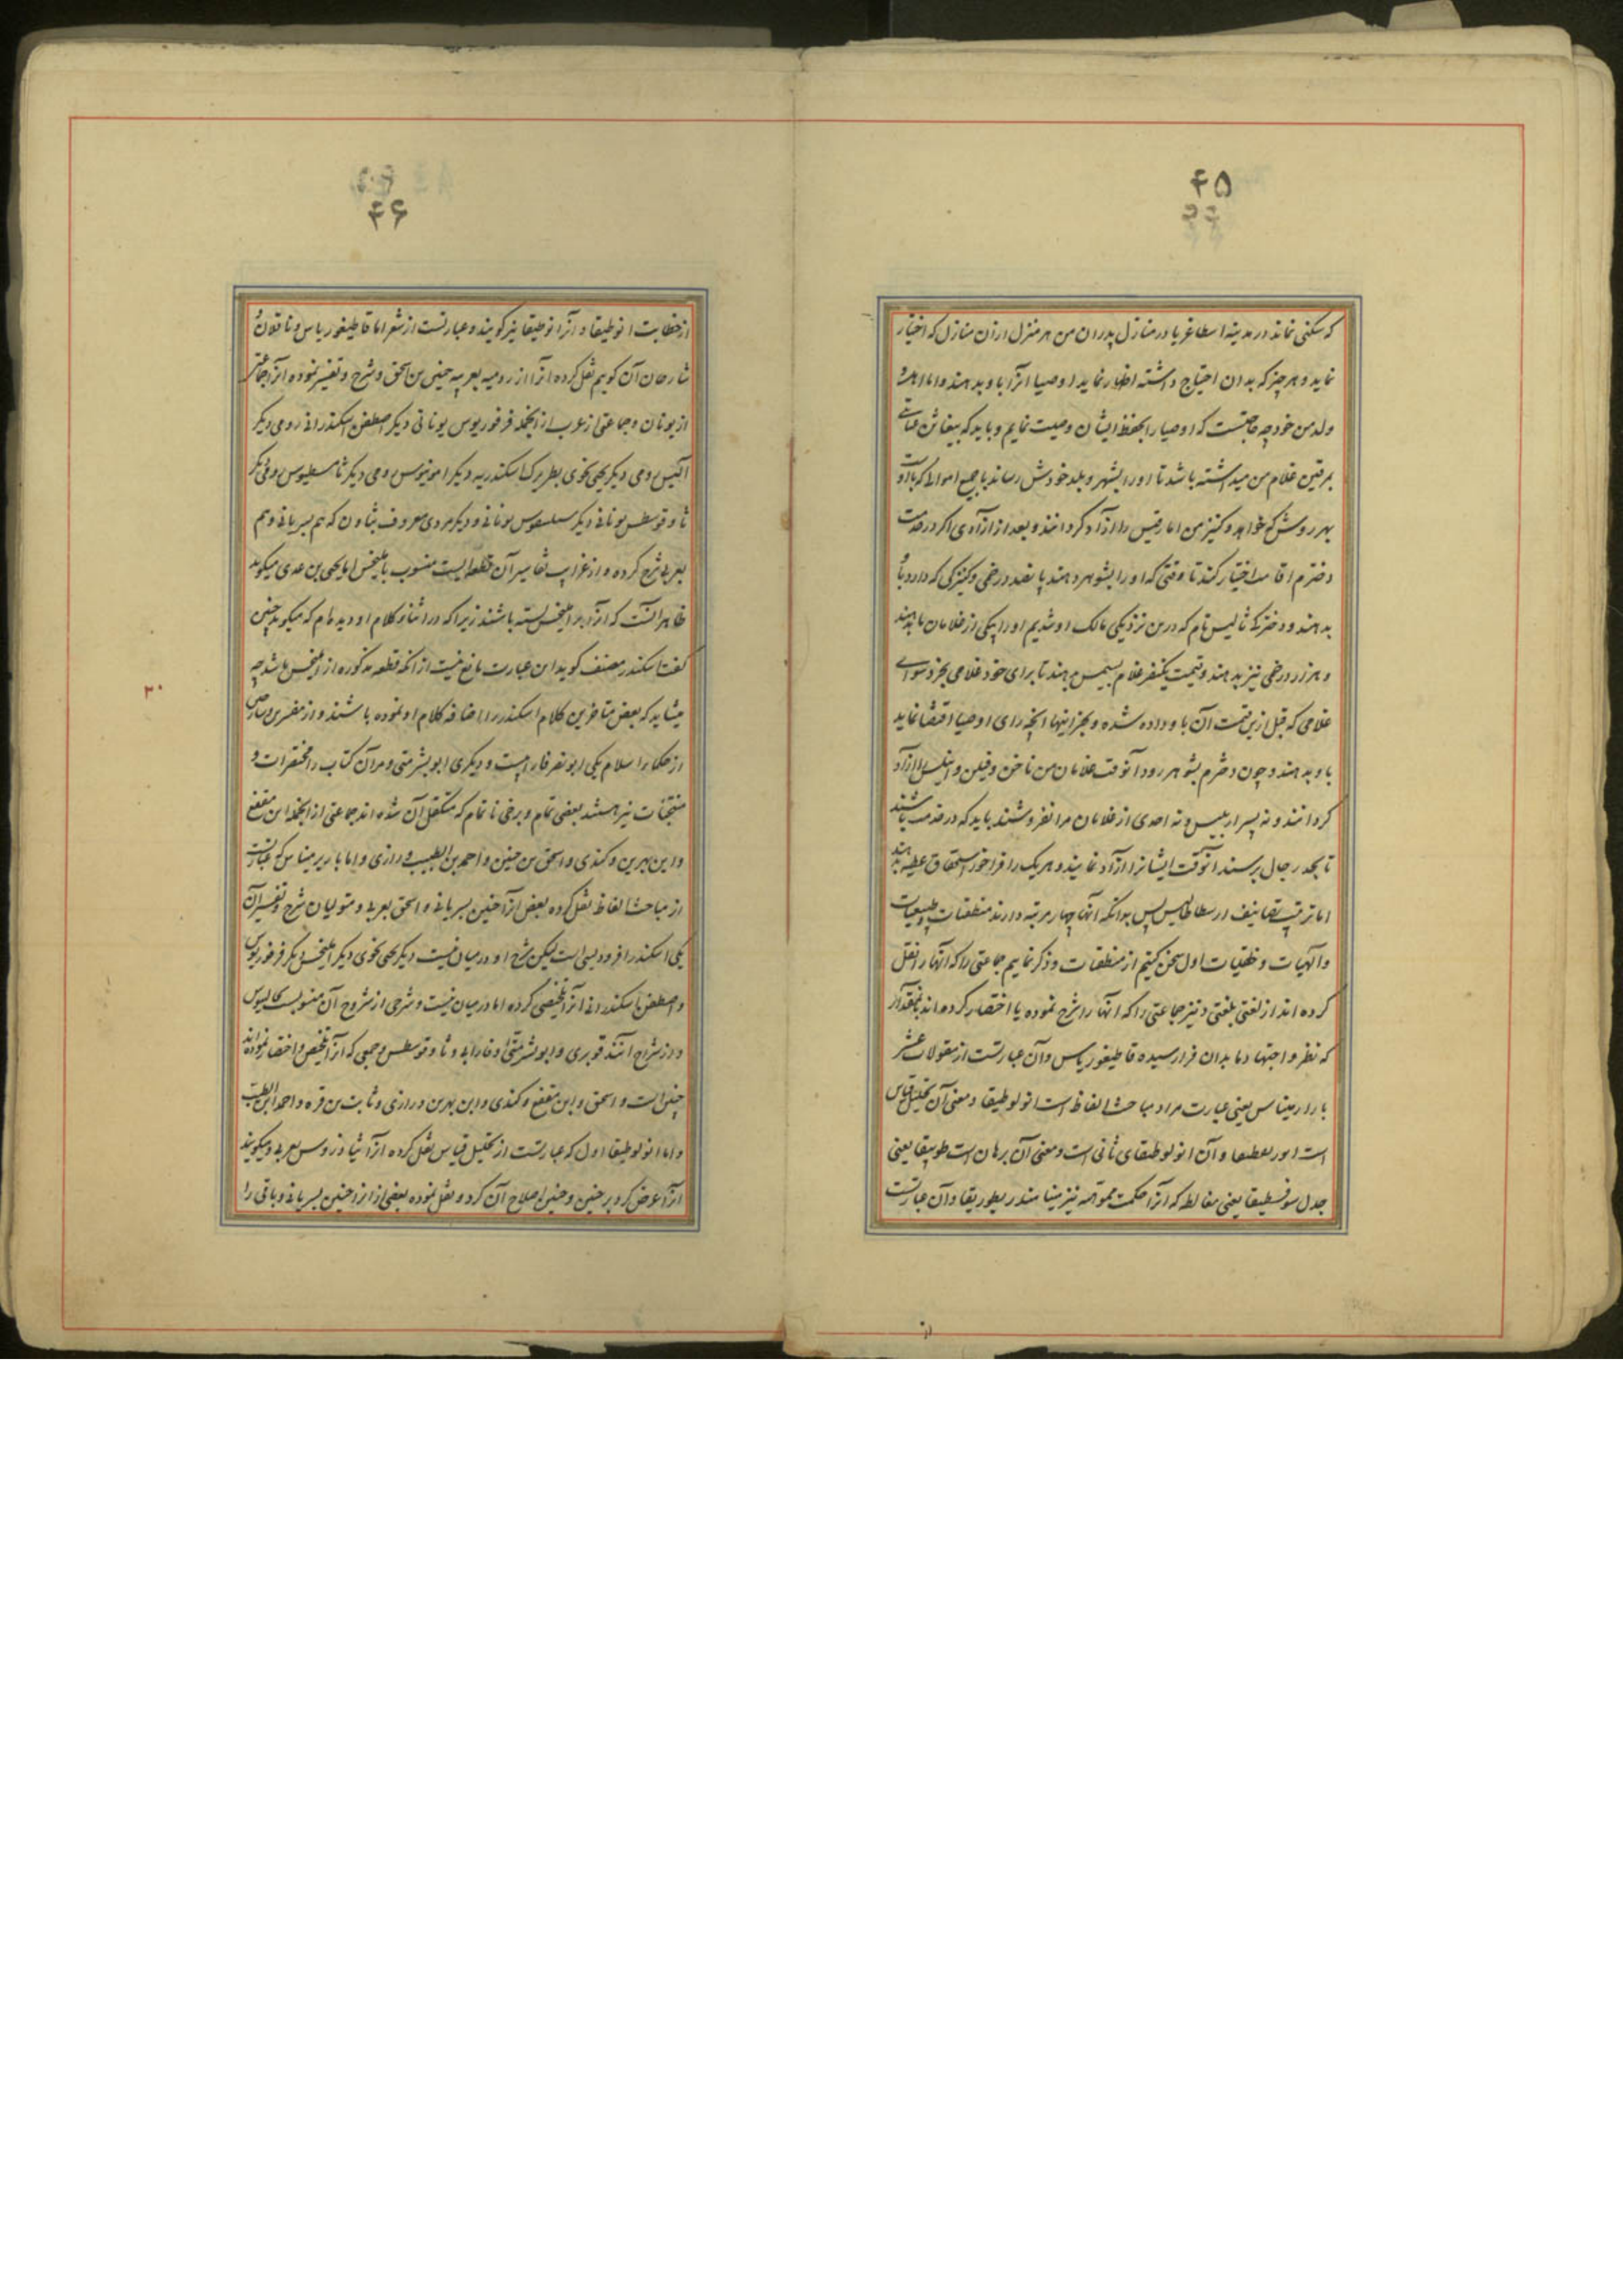 ۴۵
که سکنی نماید در مدینه اسطاغریا در منازل پدران من هر منزل از آن منازل که اختیار
نماید و هر چیز که بدان احتیاج داشته اظهار نماید اوصیا آنرا باو بدهند و اما اهل و
ولد من خود چه حاجتست که اوصیا را بحفظ ایشان وصیت نمایم و باید که
برقین غلام من میداشته باشد تا او را بشهر و بلد خودش رساند با جمیع اموالی که
بهر روش که خواهد و کنیز من امارقیس را آزاد گردانند و بعد از آزادی اگر در خدمت
دخترم اقامت اختیار کند تا وقتی که او را بشوهر دهند پانصد درخمی و کنیزکی که دارد باو
بدهند و دخترکه ثالیس نام که درین نزدیکی مالک او شدیم او را یکی از غلامان ما بدهند
و هزار درخمی نیز بدهند و قیمت یکنفر غلام بسیمس بدهند تا برای خود غلامی بخرد سوای
غلامی که قبل ازین قیمت آن باو داده شده و بجز اینها آنچه رای اوصیا اقتضا نماید
باو بدهند و چون دخترم بشوهر رود آنوقت غلامان من ناخن و فیلن و را آزاد
گردانند و نه پسر و نه احدی از غلامان مرا نفروشند باید که در خدمت باشند
تا بحد رجال برسند آنوقت ایشانرا آزاد نمایند و هر یک را فراخور استحقاق عطیه بدهند
اما ترتیب تصانیف ارسطاطالیس پس بدانکه آنها چهار مرتبه دارند منطقیات و طبیعیات
و آلهیات و خلقیات اول سخن کنیم از منطقیات و ذکر نماییم جماعتی را که آنها را نقل
کرده اند از لغتی بلغتی و نیز جماعتی را که آنها را شرح نموده یا اختصار کرده اند بمقدار
که نظر و اجتهاد ما بدان فرا رسیده قاطیغوریاس و آن عبارتست از مقولات عشر
باراریمیناس یعنی عبارت مراد مباحث الفاظ است انولوطیقا و معنی آن تحلیل قیاس
است و آن انولوطیقای ثانی است و معنی آن برهان است طوبیقا یعنی
جدل سوفسطیقا یعنی مغالطه که آنرا حکمت مموهه نیز مینامند ریطوریقا و آن عبارتست
از
۴۶
از خطابت انوطیقا و آنرا نوطیقا نیز گویند و عبارتست از شعر اما قاطیغوریاس و ناقلان و
شارحان آن گوییم نقل کرده آنرا از رومیه بعربیه حنین بن اسحق و شرح و تفسیر نموده آنرا جماعتی
از یونان و جماعتی از عرب از آنجمله فرفوریوس یونانی دیگر اصطفن اسکندرانی رومی دیگر
اللینس رومی دیگر یحیی نحوی بطریرک اسکندریه دیگر امونیوس رومی دیگر ثامسطیوس رومی دیگر
ثاوفرسطس یونانی دیگر سنبلیقوس یونانی و دیگر مردی معروف بثاون که هم بسریانی و هم
بعربی شرح کرده و از غرایب تفاسیر آن قطعه ایست منسوب باملیخس اما یحیی بن عدی میگوید
ظاهر آنست که آنرا بر املیخس بسته باشند زیرا که در اثناء کلام او دیده ام که میگوید چنین
گفت اسکندر مصنف گوید این عبارت مانع نیست از آنکه قطعه مذکوره از املیخس باشد چه
میشاید که بعض متاخرین کلام اسکندر را اضافه کلام او نموده باشند و از مفسرین و شارحین
از حکماء اسلام یکی ابو نصر فارابیست و دیگری ابو بشر متی و مر آن کتاب را مختصرات و
منتخبات نیز هستند بعضی تمام و برخی ناتمام که متکفل آن شده اند جماعتی از آنجمله ابن مقفع
و ابن بهرین و کندی و اسحق بن حنین و احمد بن الطیب و رازی و اما باریرمیناس که عبارتست
از مباحث الفاظ نقل کرده بعض آنرا حنین بسریانی و اسحق بعربی و متولیان شرح و تفسیر آن
یکی اسکندر افرودیسی است لیکن شرح او در میان نیست دیگر یحیی نحوی دیگر املیخس دیگر فرفوریوس
و اصطفن اسکندرانی آنرا تلخیصی کرده اما در میان نیست و شرحی از شروح آن منسوبست بجالینوس
و از شراح آنند قویری و ابو بشر متی و فارابی و ثاوفرسطس و جمعی که آنرا تلخیص و اختصار نموده اند
حنین است و اسحق و ابن مقفع و کندی و ابن بهرین و رازی و ثابت بن قره و احمد ابن الطیب
و اما انولوطیقا اول که عبارتست از تحلیل قیاس نقل کرده آنرا ثیادوروس بعربی و میگویند
آنرا عرض کرد بر حنین و حنین اصلاح آن کرد و نقل نموده بعضی از آنرا حنین بسریانی و باقی را
۲۰